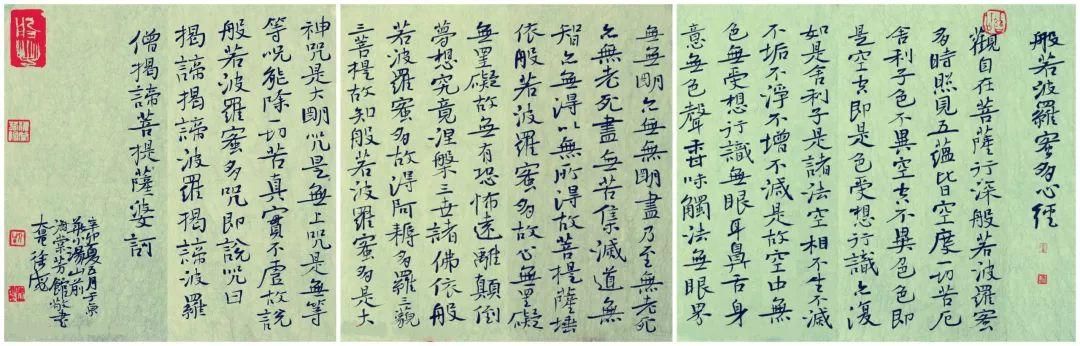 般若波羅蜜多心經
觀自在菩薩行深般若波羅蜜
多時照見五蘊皆空度一切苦厄
舍利子色不異空空不異色色即
是空空即是色受想行識亦復
如是舍利子是諸法空相不生不滅
不垢不淨不增不減是故空中無
色無受想行識無眼耳鼻舌身
意無色聲香味觸法無眼界
無無明亦無無明盡乃至無老死
亦無老死盡無苦集滅道無
智亦無得以無所得故菩提薩埵
依般若波羅蜜多故心無罣礙
無罣礙故無有恐怖遠離顛倒
夢想究竟涅槃三世諸佛依般
若波羅蜜多故得阿耨多羅三藐
三菩提故知般若波羅蜜多是大
神咒是大明咒是無上咒是無等
等咒能除一切苦真實不虛故說
般若波羅蜜多咒即說咒曰
揭諦揭諦波羅揭諦波羅
僧揭諦菩提薩婆訶
辛卯夏五月于京
小湯山前
海棠芳館敬書
徐